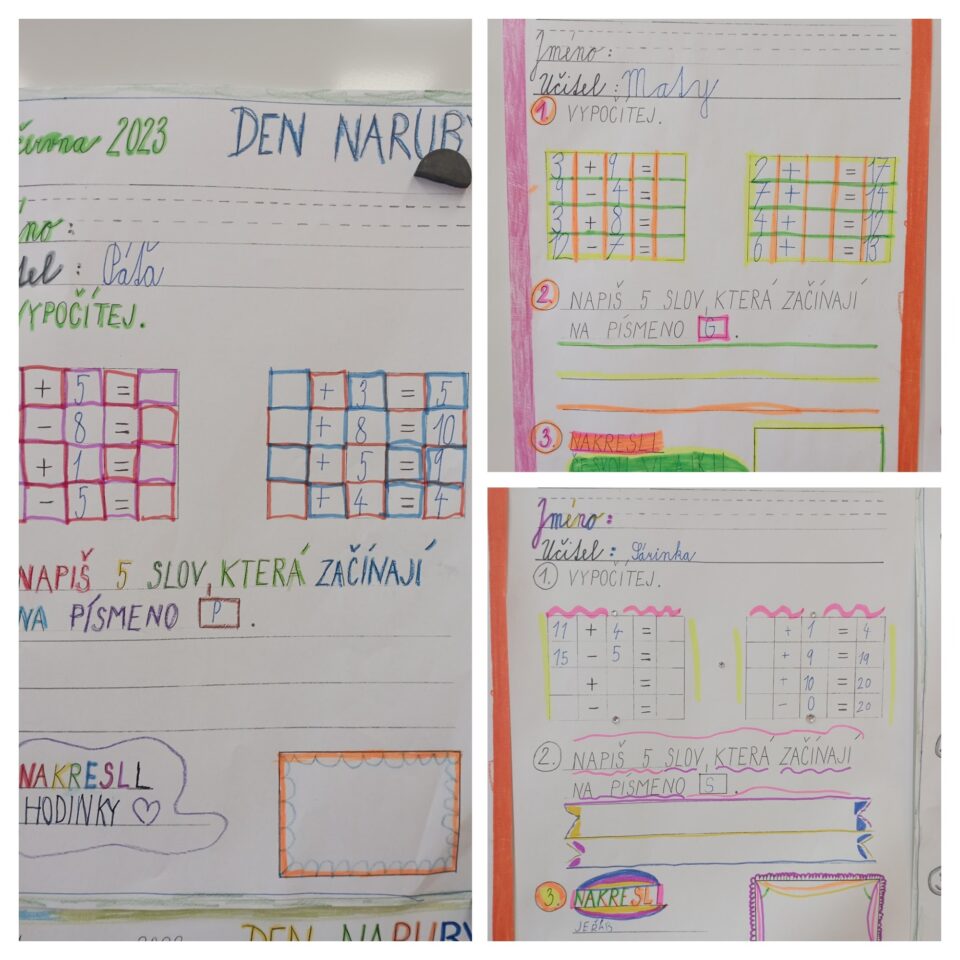 června 2023 DEN NARUBY
no :
tel : Páťa
VYPOČÍTEJ.
+ 5 =
- 8 =
+ 1 =
- 5 =
+ 3 = 5
+ 8 = 10
+ 5 = 9
+ 4 = 4
NAPIŠ 5 SLOV, KTERÁ ZAČÍNAJÍ
NA PÍSMENO P .
NAKRESLI
HODINKY ♡
DEN NARUBY
Jméno :
Učitel : Maty
1. VYPOČÍTEJ.
3 + 9 =
9 - 4 =
3 + 8 =
12 - 7 =
2 + = 17
7 + = 14
4 + = 12
6 + = 13
2. NAPIŠ 5 SLOV, KTERÁ ZAČÍNAJÍ
NA PÍSMENO G .
3. NAKRESLI
Jméno :
Učitel : Sárinka
1. VYPOČÍTEJ.
11 + 4 =
15 - 5 =
+ =
- =
+ 1 = 4
+ 9 = 19
+ 10 = 20
- 0 = 20
2. NAPIŠ 5 SLOV, KTERÁ ZAČÍNAJÍ
NA PÍSMENO S .
3. NAKRESLI
JEŘÁB